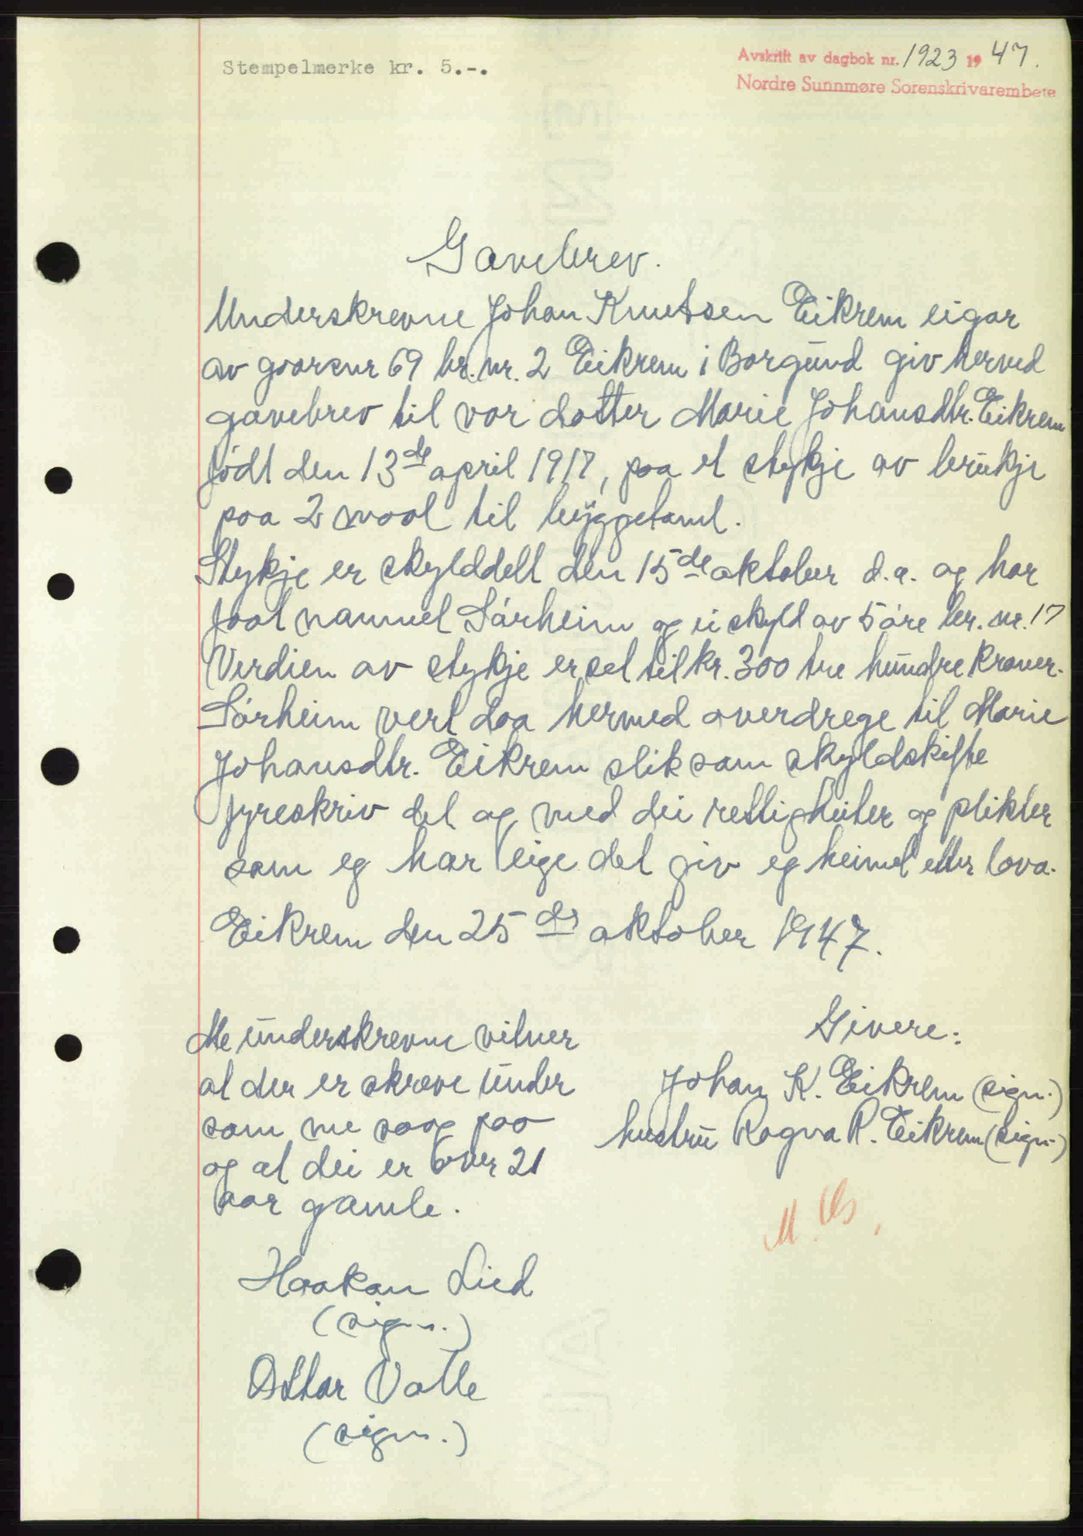 Stempelmerke kr. 5.-.
Avskrift av dagbok nr. 1923 19 47.
Nordre Sunnmøre Sorenskrivarembete
Gavebrev.
Underskrevne Johan Knutsen Eikrem eigar
av gaardsnr 69 br. nr. 2 Eikrem i Borgund giv herved
gavebrev til vor dotter Marie Johansdtr. Eikrem
født den 13de april 1917, paa et stykje av brukje
paa 2 maal til byggetomt.
Stykje er skylddelt den 15de aktober d.a. og har
faat namnet Sørheim og ei skyld av 5 øre br. nr. 17
Verdien av stykje er sat til kr. 300 tre hundre kroner.
Sørheim vert daa hermed overdrege til Marie
Johansdtr. Eikrem slik som skyldskifte
fyreskriv det og med dei rettigheiter og plikter
som eg har eige det giv eg heimel etter lova.
Eikrem den 25de aktober 1947.
Me underskrevne vitner
at der er skreve under
som me saag paa
og at dei er over 21
aar gamle.
Givere:
Johan K. Eikrem (sign.)
hustru Ragna R. Eikrem (sign.)
Haakon Lied
(sign.)
Ottar Valle
(sign.)